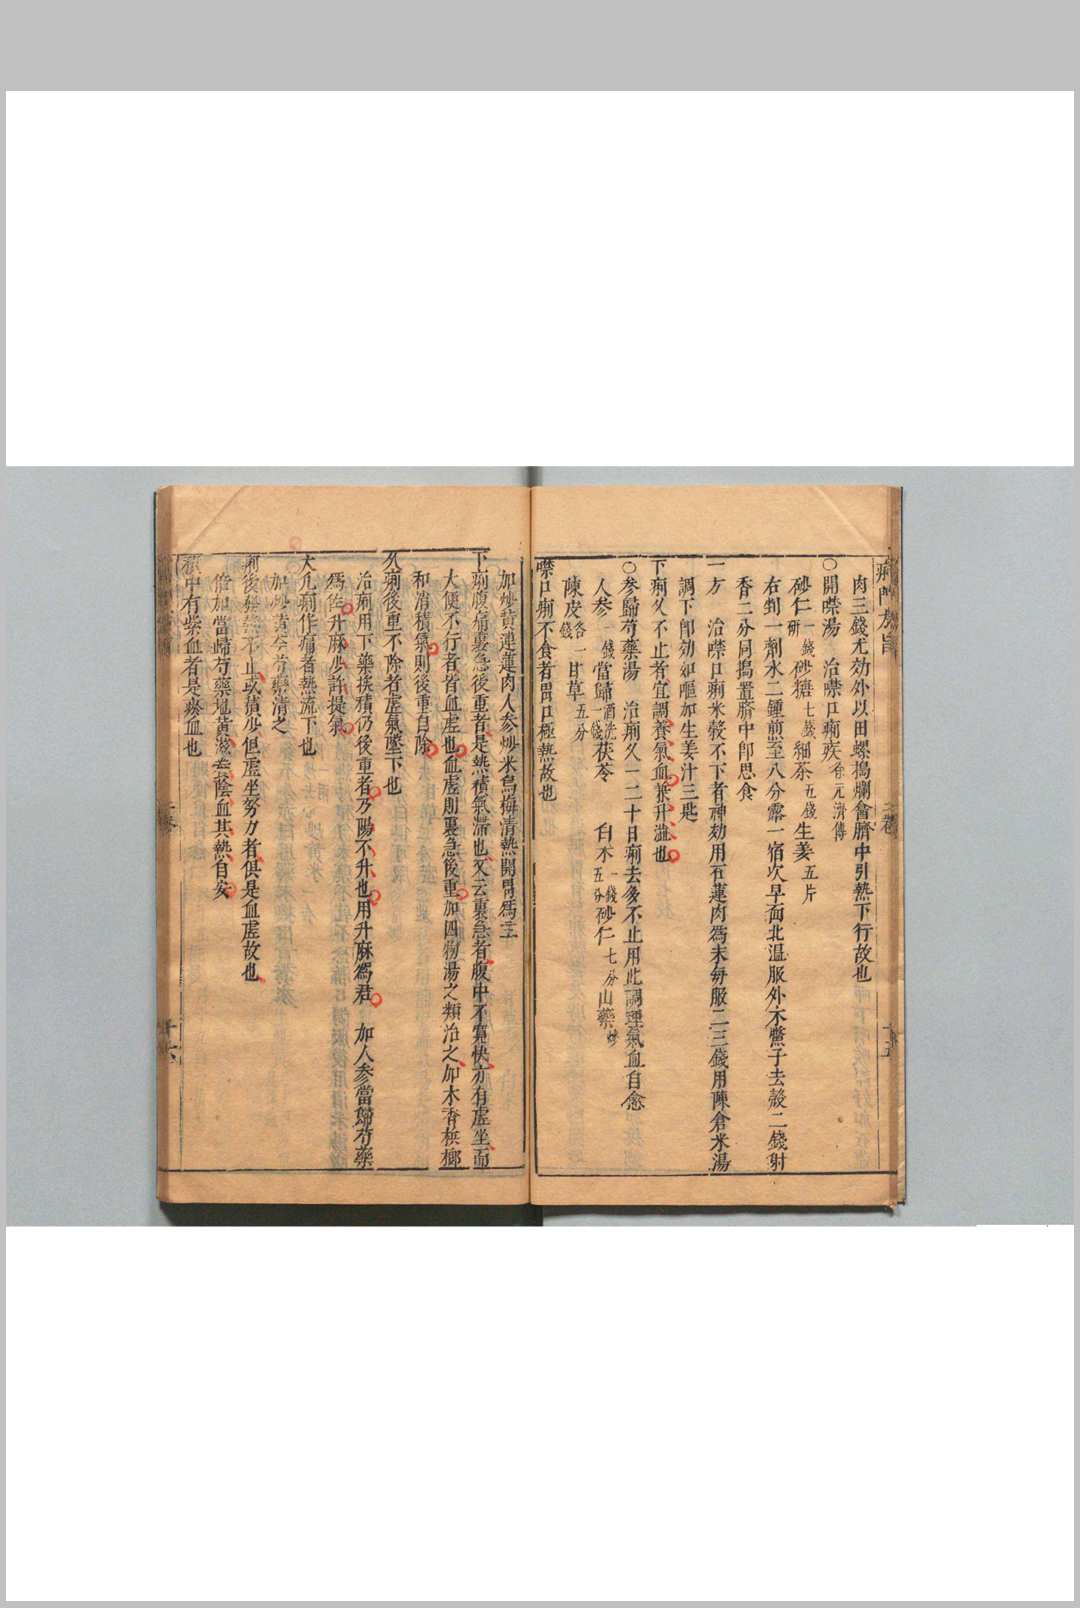 肉三錢尤効外以田螺搗爛盦臍中引熱下行故也
○開噤湯　治噤口痢疾徐元濟傳
砂仁一錢研砂糖七錢細茶五錢生姜五片
右剉一劑水二鍾煎至八分露一宿次早面北温服外木鱉子去殼二錢射
香二分同搗置臍中即思食
一方　治噤口痢米穀不下者神効用石蓮肉爲末每服二三錢用陳倉米湯
調下即効如嘔加生姜汁三匙
下痢久不止者宜調養氣血兼升澁也
○參歸芍藥湯　治痢久一二十日痢去多不止用此調理氣血自愈
人參一錢當歸酒洗一錢茯苓　白朮一錢五分砂仁七分山藥炒
陳皮各一錢甘草五分
噤口痢不食者胃口極熱故也
加炒黄連蓮肉人參炒米烏梅清熱開胃爲主
下痢腹痛裏急後重者是熱積氣滯也又云裏急者腹中不寛快亦有虚坐而
大便不行者皆血虚也血虚則裏急後重加四物湯之類治之加木香梹榔
和消積氣則後重自除
久痢後重不除者虚氣墜下也
治痢用下藥挨積仍後重者乃陽不升也用升麻爲君　加人參當歸芍藥
爲佐升麻少許提氣
大凡痢作痛者熱流下也
加炒黄芩芍藥清之
痢後糞不止或積少但虚坐努力者俱是血虚故也
倍加當歸芍藥地黄滋養陰血其熱自安
積中有紫血者是瘀血也
痢門方旨
三卷
十五
十六